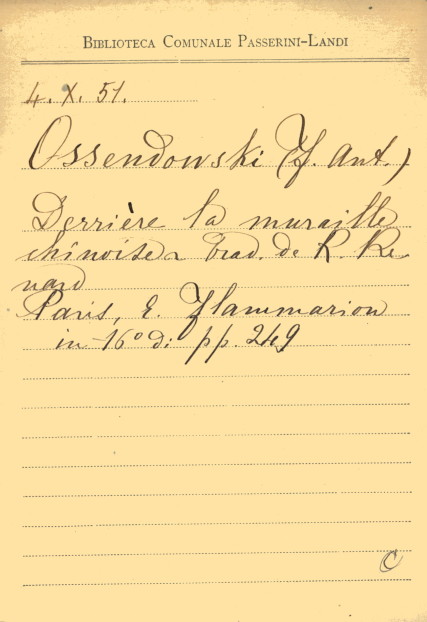 BIBLIOTECA COMUNALE PASSERINI-LANDI
4. X. 51.
Ossendowski (F. Ant.)
Derrière la muraille
chinoise trad. de R. Re
nard
Paris, E. Flammarion
in 16° di pp. 249
C